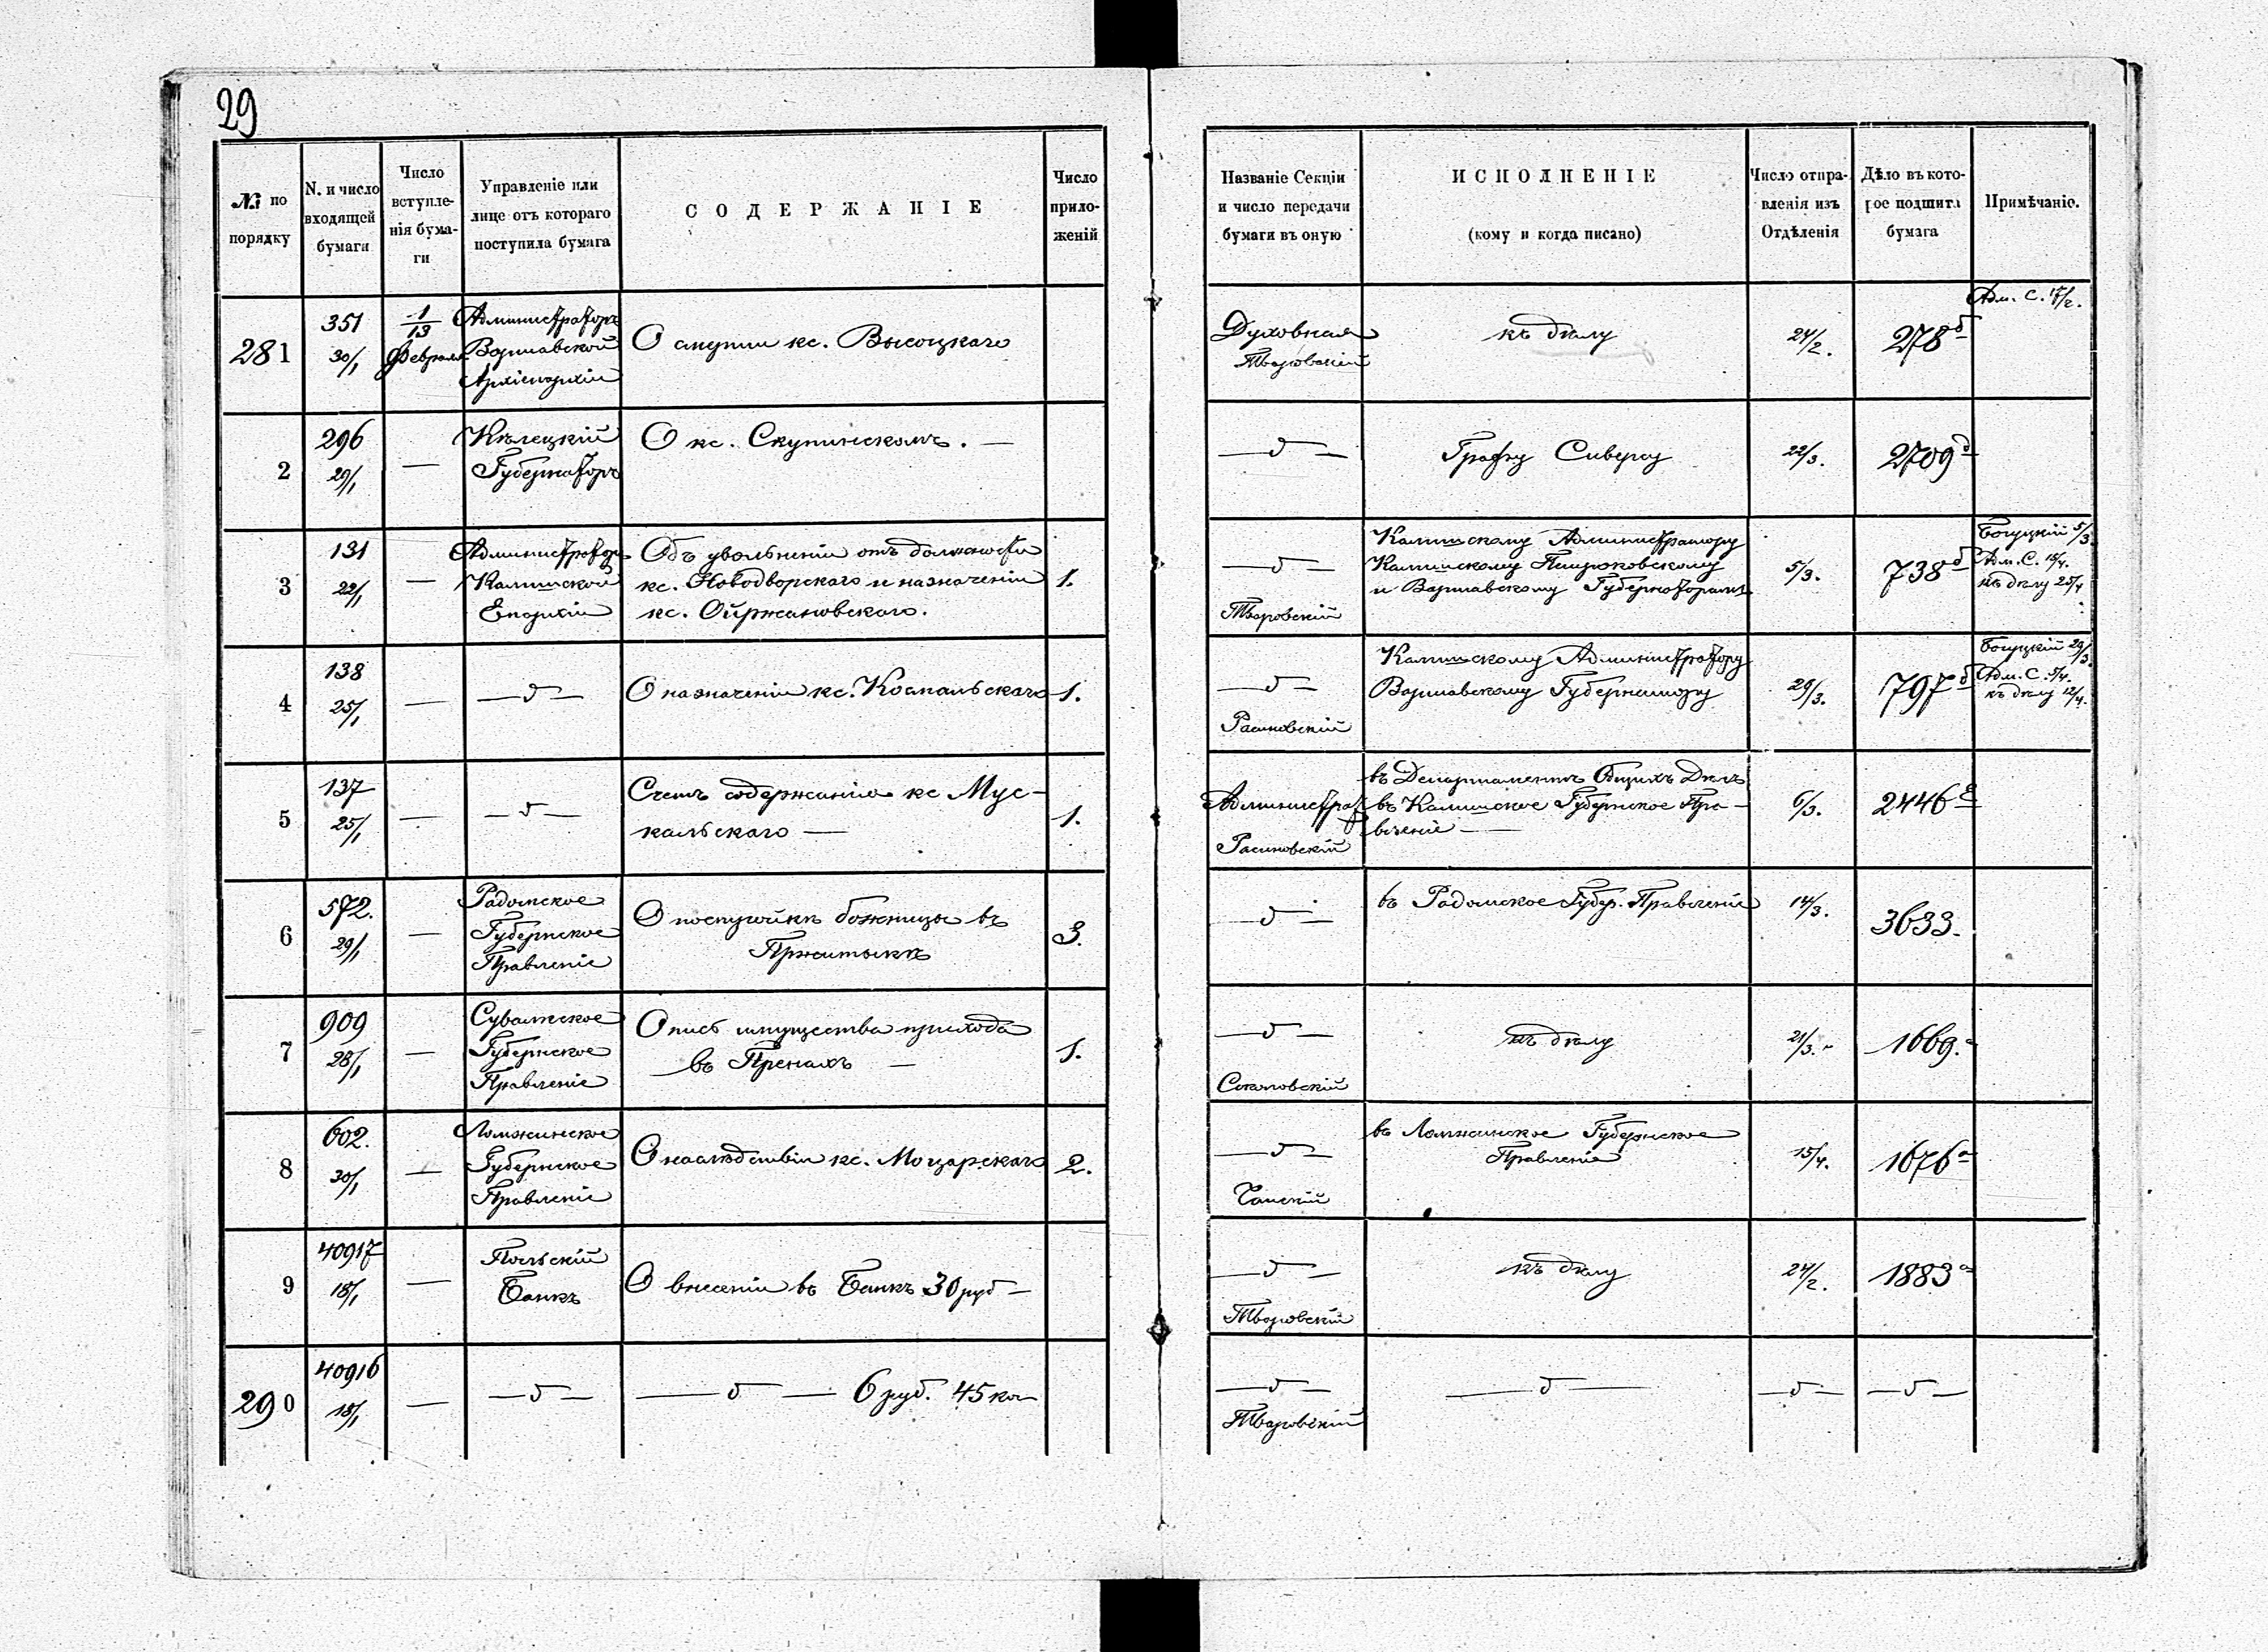 29
№ по порядку
N. и число входящей бумаги
Число вступле-
нія бума-
ги
Управленіе или
лице отъ котораго
поступила бумага
СОДЕРЖАНІЕ
Число
прило-
женій
Названіе Секціи
и число передачи
бумаги въ оную
ИСПОЛНЕНІЕ
(кому и когда писано)
Число отпра-
вленія изъ
Отдѣленія
Дѣло въ кото-
рое подшита
бумага
Примѣчаніе.
281
351
30/1
1/13
Февраля
Администраторъ
Варшавской
Архіепархіи
О смути кс. Высоцкаго
Духовная
Тваровскій
къ дѣлу
24/2.
278б
Адм. С. 17/2.
2
296
29/1
—
Кѣлецкій
Губернаторъ
О кс. Скупинскомъ. —
— д —
Графу Сиверсу
22/3.
2709д
3
131
22/1
—
Администраторъ
Калишской
Епархіи
Объ увольненіи отъ должности
кс. Новодворскаго и назначеніи
кс. Ойржановскаго.
1.
— д —
Тваровскій
Калишскому Администратору
Калишскому Петроковскому
и Варшавскому Губернаторамъ
5/3.
738б
Богуцкій 5/3.
Адм. С. 15/4.
къ дѣлу 25/4
4
138
25/1
—
— д —
О назначеніи кс. Коспальскаго
1.
— д —
Расиновскій
Калишскому Администратору
Варшавскому Губернатору
29/3.
797б
Богуцкій 29/3.
Адм. С. 5/4.
къ дѣлу 12/4.
5
137
25/1
—
— д —
Счетъ содержанія кс Мус-
кальскаго —
1.
Администрат
Расиновскій
въ Департаментъ Общихъ Дѣлъ
въ Калишское Губернское Пра-
вленіе —
6/3.
2446Е
6
572.
29/1
—
Радомское
Губернское
Правленіе
О постройкѣ божницы въ
Пржитыкѣ
3.
— д —
въ Радомское Губер. Правленіе
14/3.
3633.
7
909
28/1
—
Сувалкское
Губернское
Правленіе
Опись имущества прихода
въ Пренахъ —
1.
— д —
Соколовскій
къ дѣлу
21/3.
1669.а
8
602.
30/1
—
Ломжинское
Губернское
Правленіе
О наслѣдствіи кс. Моцарскаго
2.
— д —
Чанскій
въ Ломжинское Губернское
Правленіе
15/4.
1676а
9
40917
18/1
—
Польскій
Банкъ
О внесеніи въ Банкъ 30 руб —
— д —
Тваровскій
къ дѣлу
24/2.
1883а
290
40916
18/1
—
— д —
— д — 6 руб. 45 коп
— д —
Тваровскій
— д —
— д —
— д —